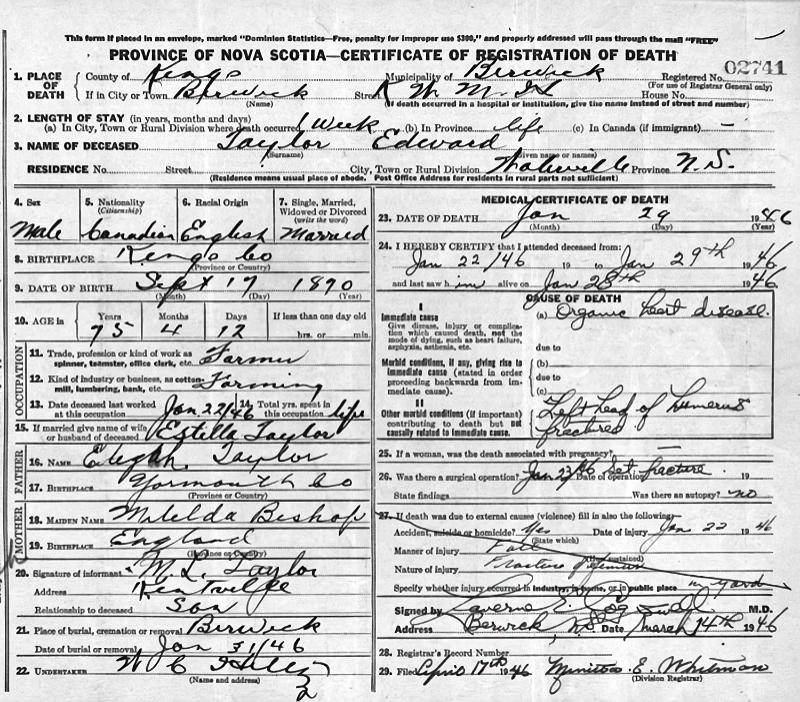 This form if placed in an envelope, marked "Dominion Statistics—Free, penalty for improper use $300," and properly addressed will pass through the mail "FREE"
PROVINCE OF NOVA SCOTIA—CERTIFICATE OF REGISTRATION OF DEATH
02741
1. PLACE OF DEATH
County of Kings Municipality of Berwick Registered No.
(For use of Registrar General only)
If in City or Town Berwick Street W M House No.
(Name) (If death occurred in a hospital or institution, give the name instead of street and number)
2. LENGTH OF STAY (in years, months and days)
(a) In City, Town or Rural Division where death occurred 1 Week (b) In Province life (c) In Canada (if immigrant) —
3. NAME OF DECEASED Taylor Edward
(Surname) (Given name or names)
RESIDENCE No. Street City, Town or Rural Division Wolfville Province N.S.
(Residence means usual place of abode. Post Office Address for residents in rural parts not sufficient)
4. Sex Male
5. Nationality (Citizenship) Canadian
6. Racial Origin English
7. Single, Married, Widowed or Divorced (write the word) Married
8. BIRTHPLACE Kings Co
(Province or Country)
9. DATE OF BIRTH Sept 17 1870
(Month) (Day) (Year)
10. AGE in Years Months Days If less than one day old
75 4 12 hrs. or min.
OCCUPATION
11. Trade, profession or kind of work as spinner, teamster, office clerk, etc. Farmer
12. Kind of industry or business, as cotton mill, lumbering, bank, etc. Farming
13. Date deceased last worked at this occupation Jan 22/46
14. Total yrs. spent in this occupation life
15. If married give name of wife or husband of deceased Estella Taylor
FATHER
16. NAME Taylor
17. BIRTHPLACE Yarmouth Co
(Province or Country)
MOTHER
18. MAIDEN NAME Bishop
19. BIRTHPLACE England
(Province or Country)
20. Signature of informant M. L. Taylor
Address Kentville
Relationship to deceased Son
21. Place of burial, cremation or removal Berwick
Date of burial or removal Jan 31/46
22. UNDERTAKER W C
(Name and address)
MEDICAL CERTIFICATE OF DEATH
23. DATE OF DEATH Jan 29 1946
(Month) (Day) (Year)
24. I HEREBY CERTIFY that I attended deceased from:
Jan 22/46 19 to Jan 29th 1946
and last saw h im alive on Jan 28th 1946
CAUSE OF DEATH
I
Immediate cause
Give disease, injury or complication which caused death, not the mode of dying, such as heart failure, asphyxia, asthenia, etc.
(a) Organic heart disease.
due to
Morbid conditions, if any, giving rise to immediate cause (stated in order proceeding backwards from immediate cause).
(b)
due to
(c)
II
Other morbid conditions (if important) contributing to death but not causally related to immediate cause.
Left head of humerus fractured
25. If a woman, was the death associated with pregnancy? —
26. Was there a surgical operation? Jan 23/46 Date of operation Set fracture 19
State findings Was there an autopsy? no
27. If death was due to external causes (violence) fill in also the following:
Accident, suicide or homicide? Yes Date of injury Jan 22 1946
(State which)
Manner of injury Fall
(How sustained)
Nature of injury Fracture of
Specify whether injury occurred in industry, in home, or in public place in yard
Signed by Laverne E. Cogswell M.D.
Address Berwick, N.S. Date March 14th 1946
28. Registrar's Record Number
29. Filed April 17th 1946 E. Whitman
(Division Registrar)